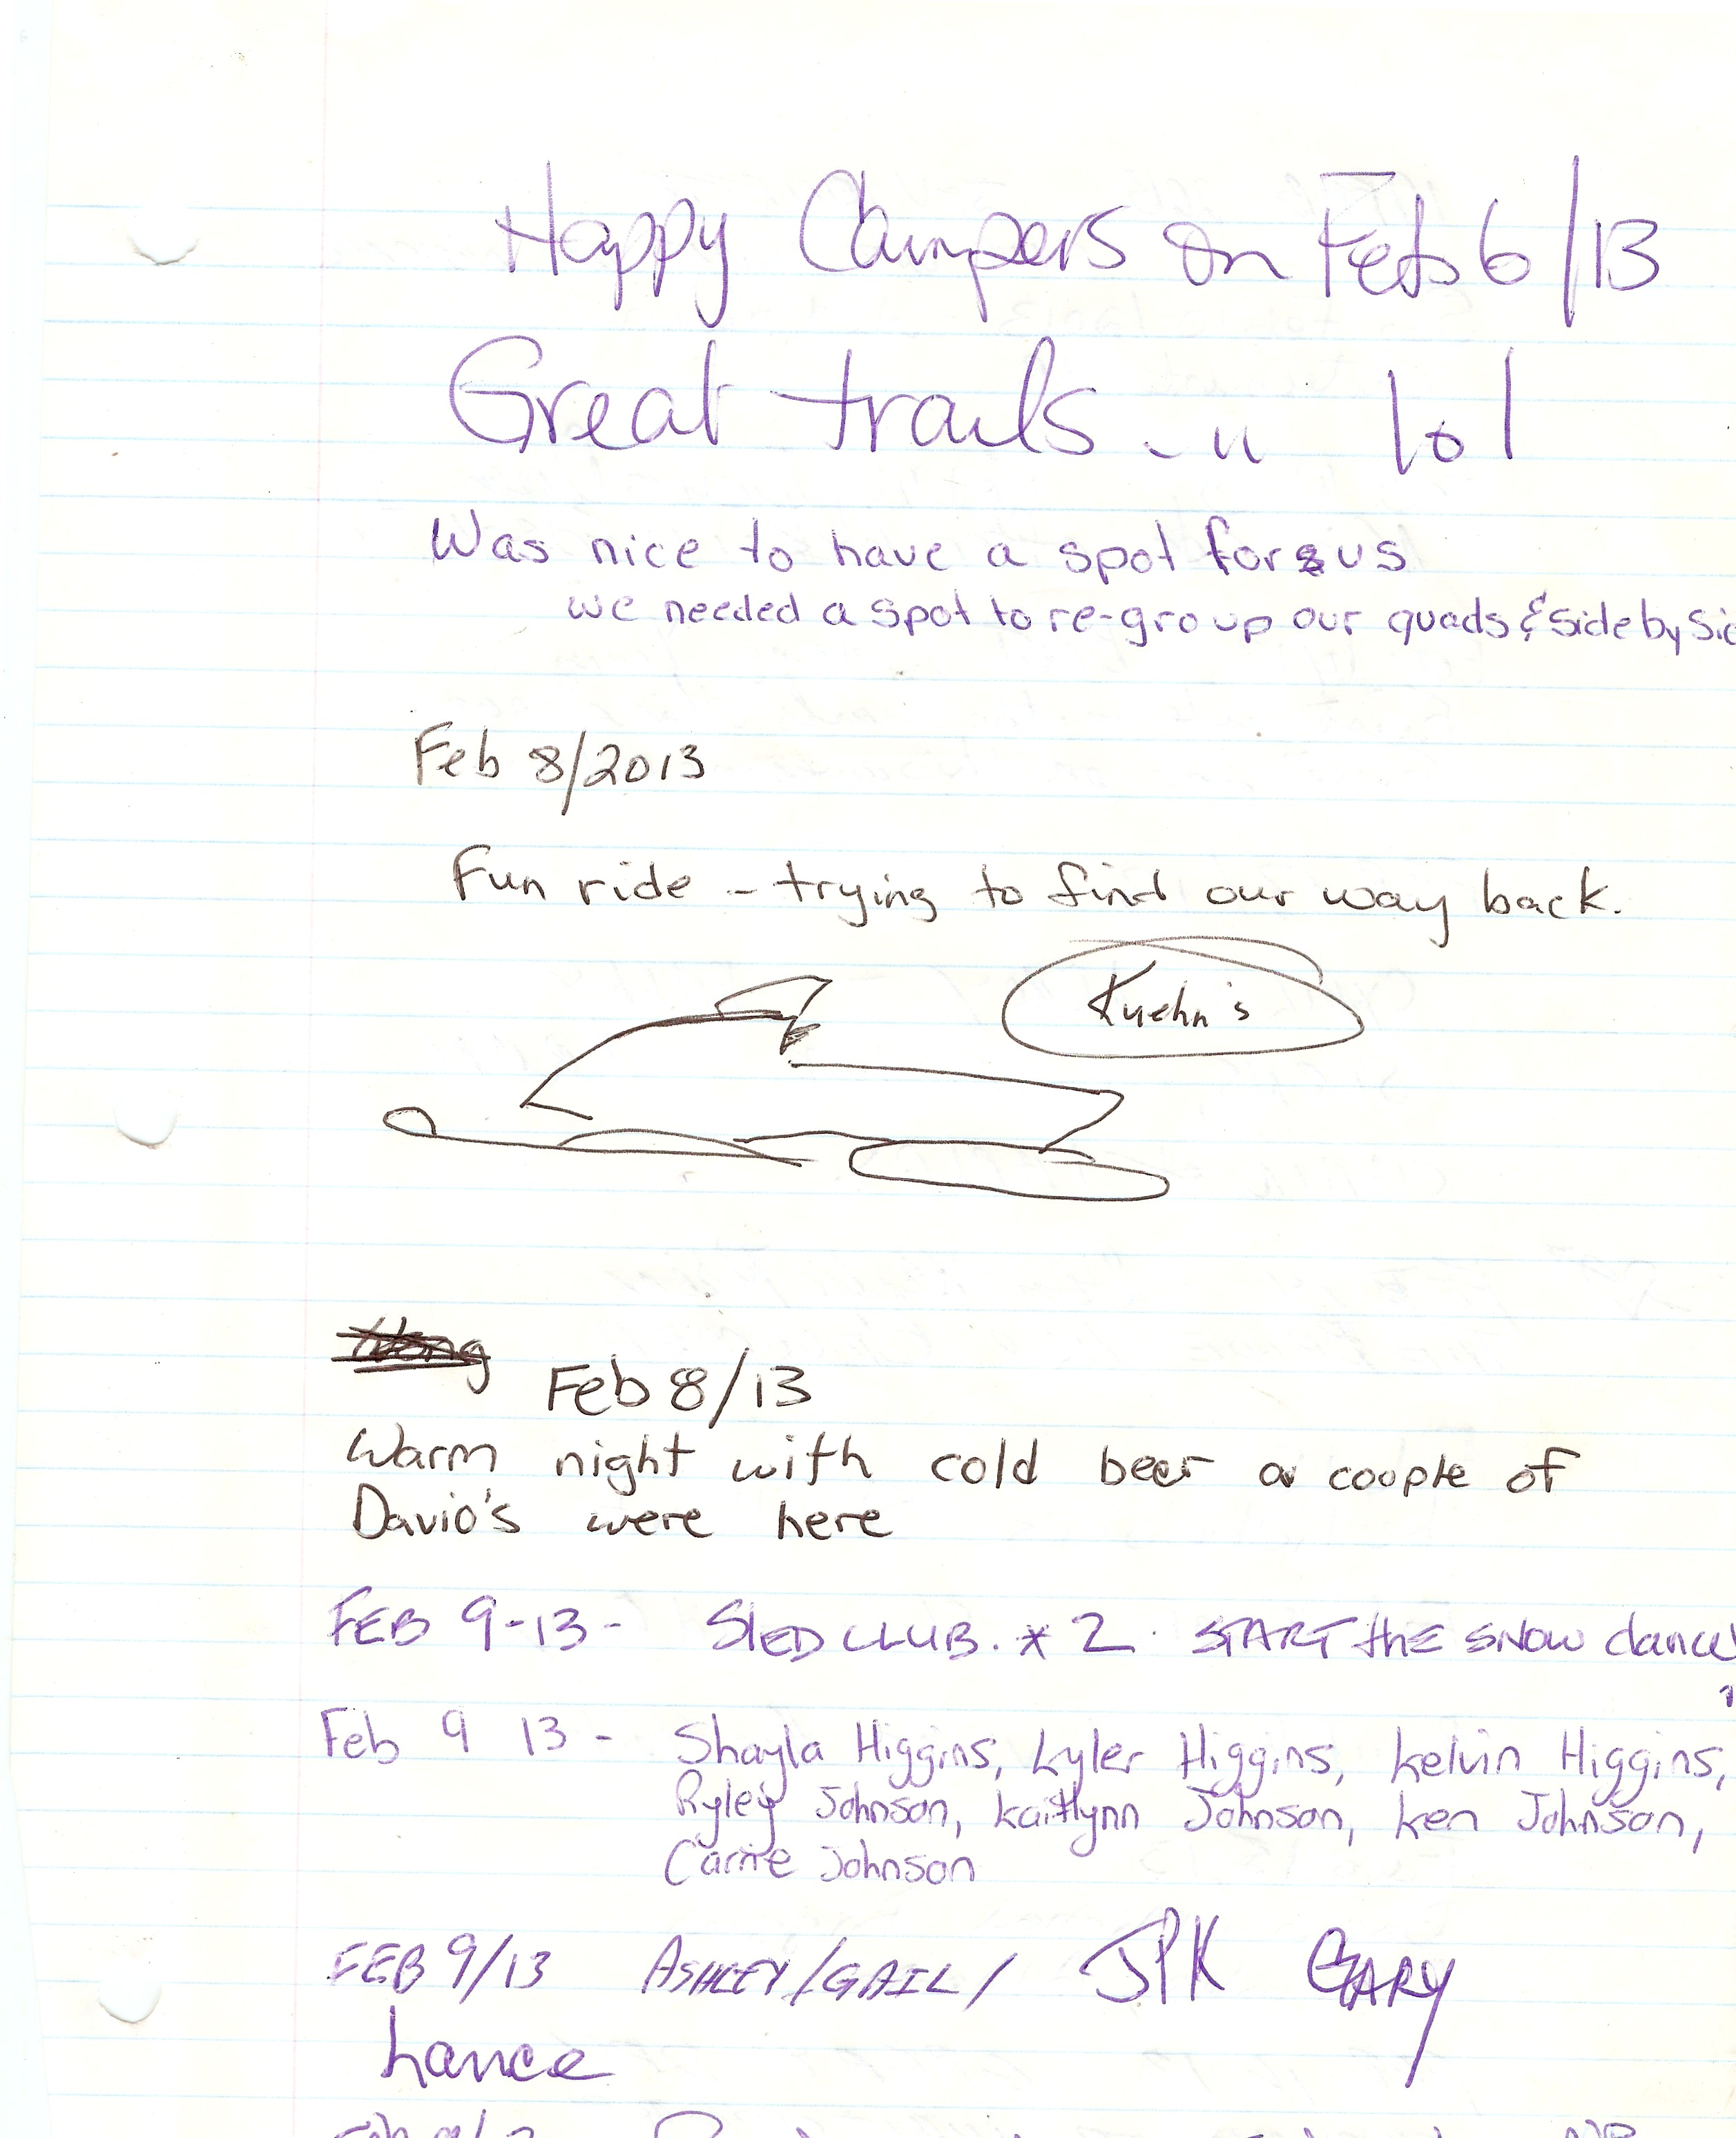 Happy Campers on Feb 6/13
Great trails ... lol
Was nice to have a spot for us
we needed a spot to re-group our quads & side by sid
Feb 8/2013
Fun ride - trying to find our way back.
Kuehn's
Feb 8/13
Warm night with cold beer a couple of
David's were here
FEB 9-13- SLED CLUB. * 2. START the SNOW dance
Feb 9 13 - Shayla Higgins, Kyler Higgins, Kelvin Higgins,
Ryley Johnson, Kaitlynn Johnson, Ken Johnson,
Carrie Johnson
FEB 9/13 ASHLEY/GAIL/ JPK GARY
Lance